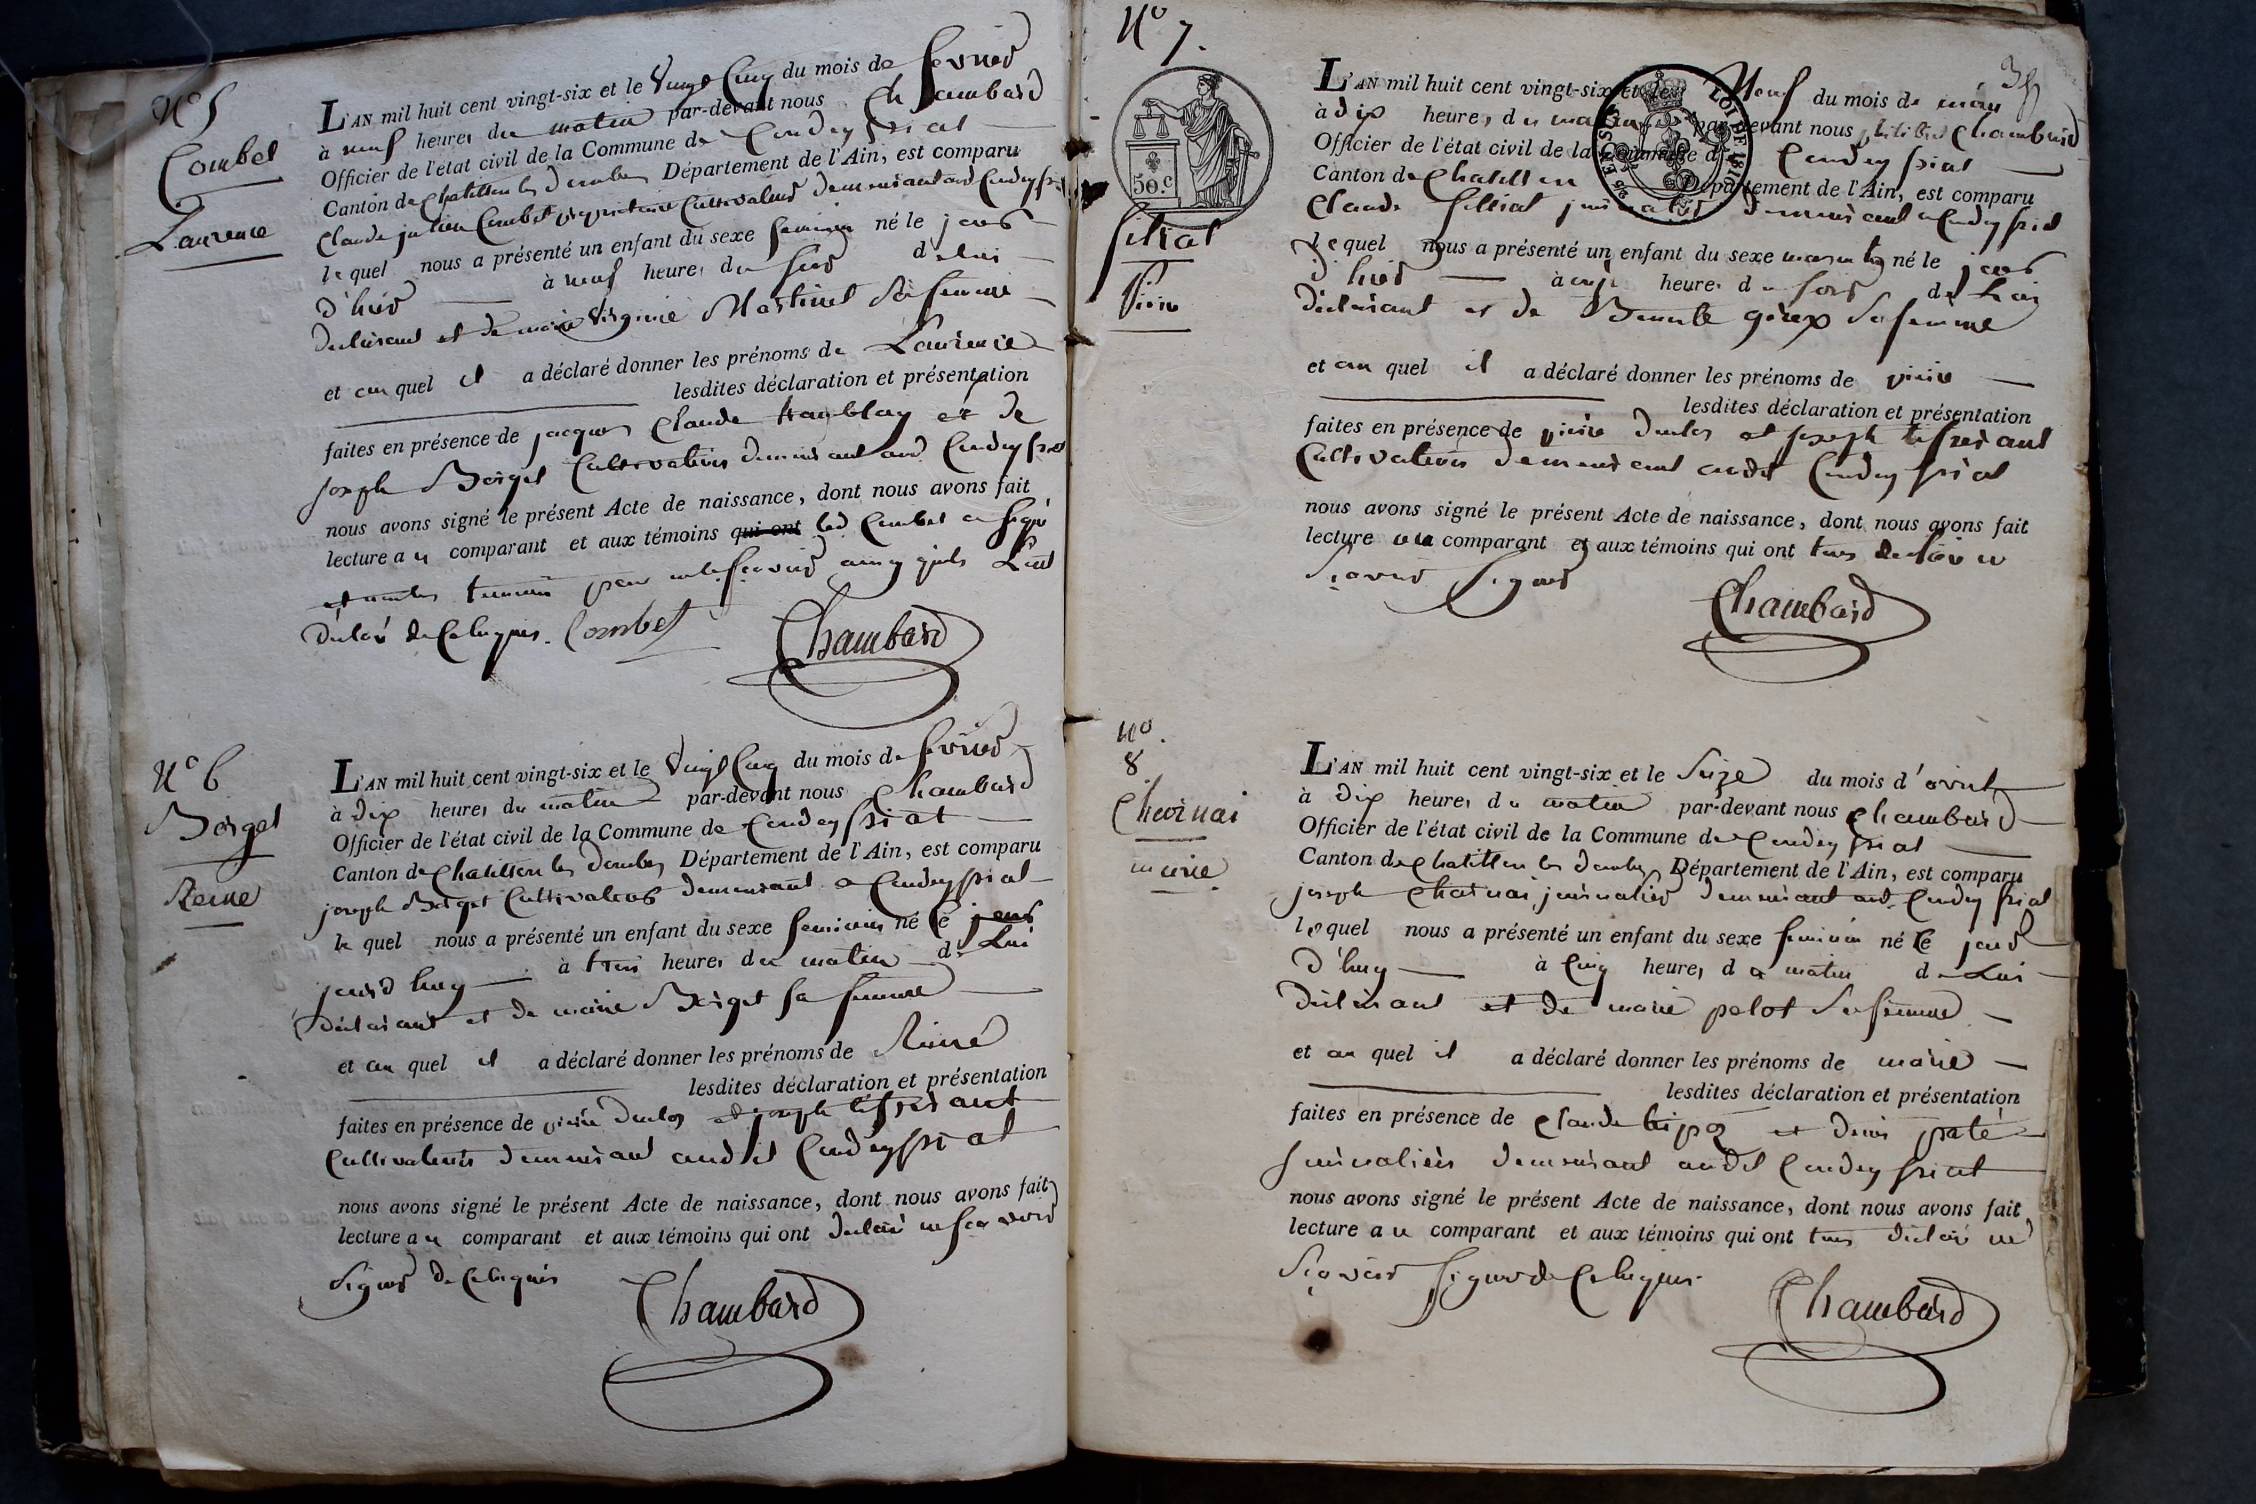 N° 5
Combet
Laurence
L'AN mil huit cent vingt-six et le vingt cinq du mois de fevrier
à neuf heures du matin par-devant nous Chambard
Officier de l'état civil de la Commune de Condeyssiat
Canton de Chatillon les dombes Département de l'Ain, est comparu
Claude julien Combet propriétaire Cultivateur demeurant aud Condeyssiat
lequel nous a présenté un enfant du sexe feminin né le jour
d'hier à neuf heures du soir de lui
declarant et de marie virginie Martinet Sa femme
et au quel il a déclaré donner les prénoms de Laurence
lesdites déclaration et présentation
faites en présence de jacques Claude tramblay et de
joseph Borget Cultivateurs demeurant aud Condeyssiat
nous avons signé le présent Acte de naissance, dont nous avons fait
lecture au comparant et aux témoins qui ont led Combet a signé
temoin pour ne scavoir ainsi quils l'ont
declaré de Ce requis. Combet Chambard
N° 6
Borget
Reine
L'AN mil huit cent vingt-six et le vingt cinq du mois de fevrier
à dix heures du matin par-devant nous Chambard
Officier de l'état civil de la Commune de Condeyssiat
Canton de Chatillon les dombes Département de l'Ain, est comparu
joseph Borget Cultivateur demeurant a Condeyssiat
lequel nous a présenté un enfant du sexe feminin né le jour
jourd huy à trois heures du matin de Lui
déclarant et de marie Borget sa femme
et au quel il a déclaré donner les prénoms de Reine
lesdites déclaration et présentation
faites en présence de pierre Duclos et joseph tisserant
Cultivateurs demeurant audit Condeyssiat
nous avons signé le présent Acte de naissance, dont nous avons fait
lecture au comparant et aux témoins qui ont declaré ne scavoir
Signer de Ce requis
Chambard
N° 7.
50.c
LOI DE 1816
Pierre
L'AN mil huit cent vingt-six et le Neuf du mois de mars
à dix heures du matin par-devant nous philibert Chambard
Officier de l'état civil de la Commune de Condeyssiat
Canton de Chatillon Département de l'Ain, est comparu
Claude journalier demeurant a Condeyssiat
lequel nous a présenté un enfant du sexe masculin né le jour
d'hier à heures du soir de Lui
declarant et de Benoite Sa femme
et au quel il a déclaré donner les prénoms de pierre
lesdites déclaration et présentation
faites en présence de pierre Duclos et joseph tisserant
Cultivateurs demeurant audit Condeyssiat
nous avons signé le présent Acte de naissance, dont nous avons fait
lecture au comparant et aux témoins qui ont tous declaré ne
Scavoir Signer
Chambard
N°.
8.
Charnai
marie
L'AN mil huit cent vingt-six et le Seize du mois d'avril
à dix heures du matin par-devant nous Chambard
Officier de l'état civil de la Commune de Condeyssiat
Canton de Chatillon les dombes Département de l'Ain, est comparu
joseph Charnai journalier demeurant aud. Condeyssiat
lequel nous a présenté un enfant du sexe feminin né le jourd
d'huy à Cinq heures du matin de Lui
declarant et de marie pelot Sa femme
et au quel il a déclaré donner les prénoms de marie
lesdites déclaration et présentation
faites en présence de Claude et denis
journaliers demeurant audit Condeyssiat
nous avons signé le présent Acte de naissance, dont nous avons fait
lecture au comparant et aux témoins qui ont tous declaré ne
Scavoir Signer de Ce requis.
Chambard